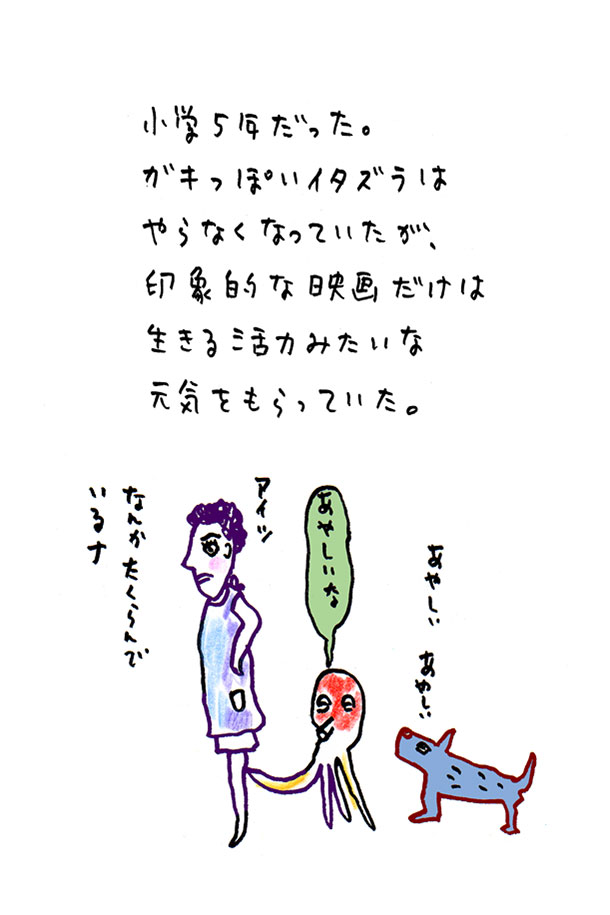 小学5年だった。
ガキっぽいイタズラは
やらなくなっていたが、
印象的な映画だけは
生きる活力みたいな
元気をもらっていた。
アイツ
なんかたくらんで
いるナ
あやしいな
あやしい あやしい